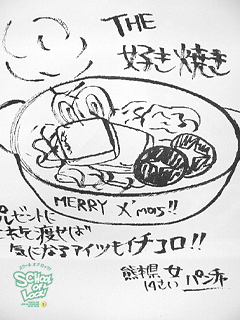 THE
好き焼き
MERRY X'mas!!
プレゼントに
これを渡せば
気になるアイツもイチコロ!!
女
14さい
パン子
SCHOOL OF LOCK!